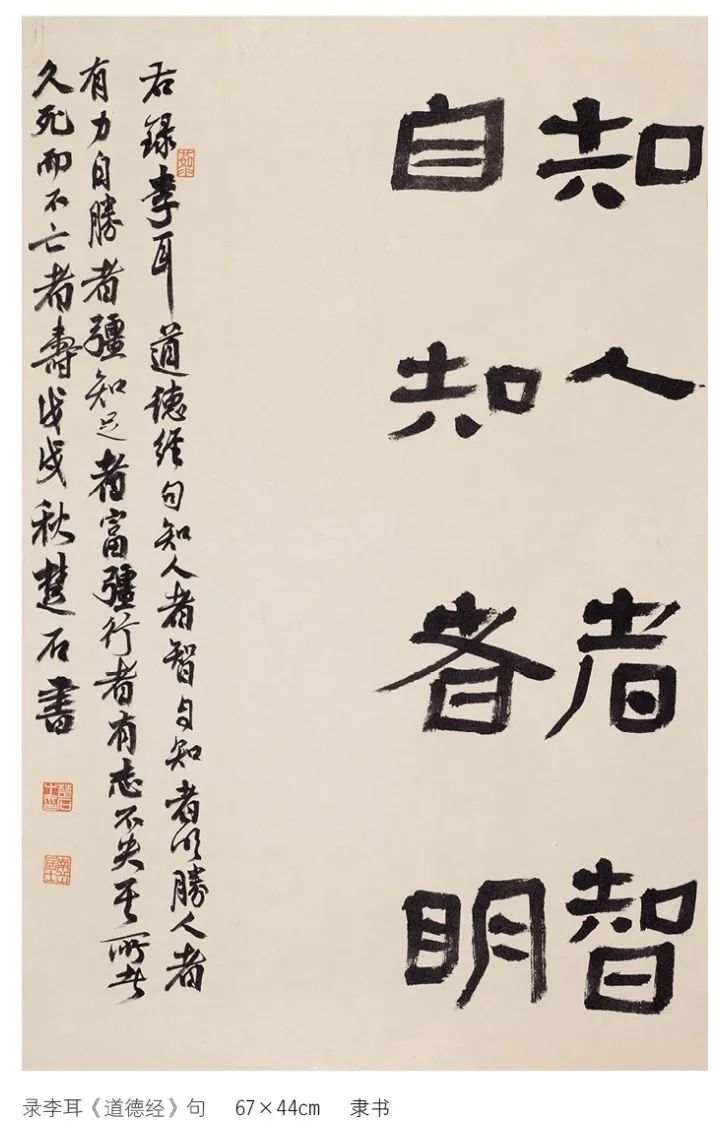 知人者智
自知者明
右録李耳道德经句知人者智自知者明勝人者
有力自勝者彊知足者富彊行者有志不失其所者
久死而不亡者壽戊戌秋楚石書
录李耳《道德经》句 67×44cm 隶书